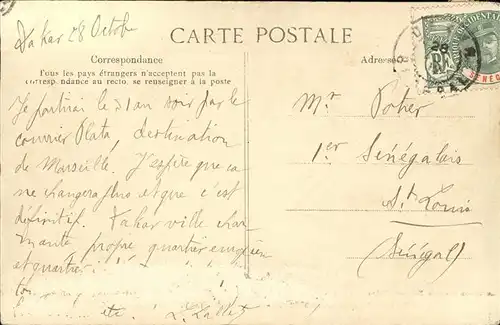 Dakar 28 Octobre
CARTE POSTALE
Correspondance
Tous les pays étrangers n'acceptent pas la
correspondance au recto. se renseigner à la poste
Adresse
Je partirai le 31 au soir par le
courrier Plata, destination
de Marseille. J'espère que ça
ne changera plus et que c'est
définitif. Dakar ville char-
mante, propre quartier européen
et quartier
Mr Potier
1er Sénégalais
St Louis
(Sénégal)
SÉNÉG